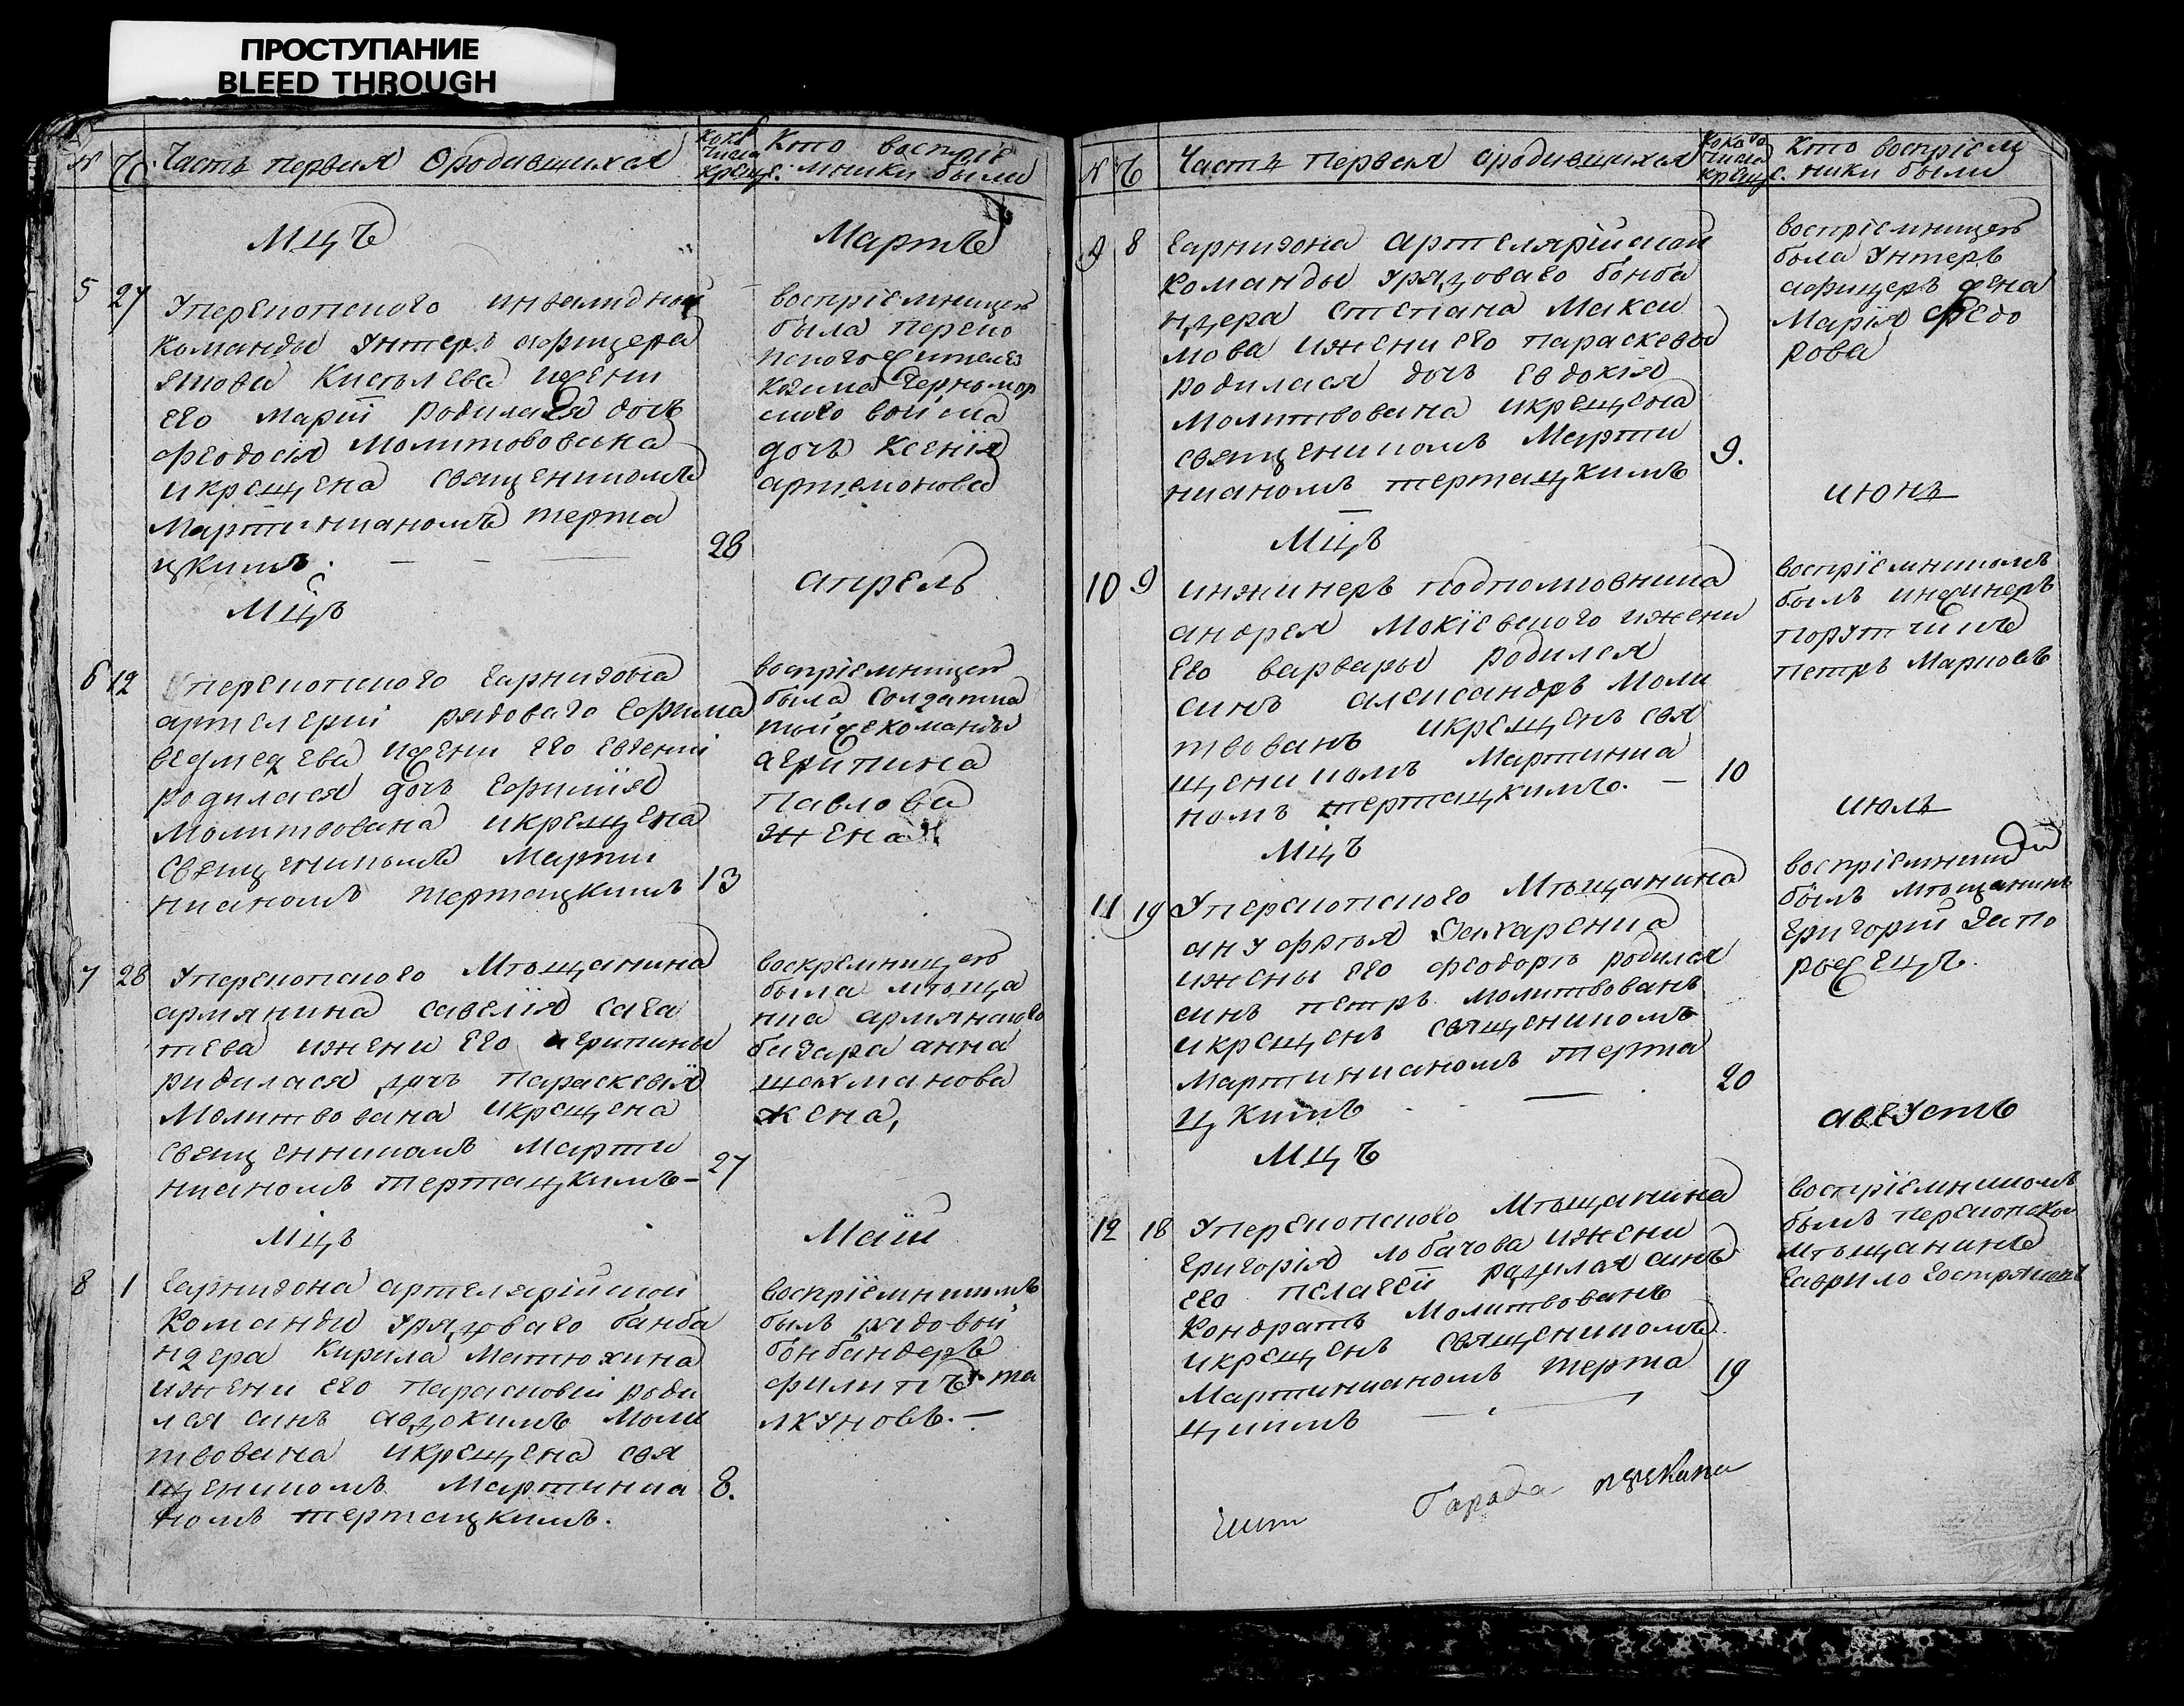 ПРОСТУПАНИЕ
BLEED THROUGH
№ Ч. Часть первая Ородившихся
Кокo
числа
крещ:
Кто воспріе
мники были
Мцъ Мартъ
5 27
Уперекопского инвалидной
команды унтеръ офицера
Кисълева иѫени
его Маріи родилася дочь
феодосія Молитвовоана
икрещена священникомъ
Мартиниакомъ терта
цкимъ. 28
воспріемницею
была переко
пского жителя
Черномор
ского войска
дочь Ксенія
артемонова
Мцъ апрель
6 12
Уперекопского гарнизона
артелеріи рядоваго ефима
ведмедева иѫени его Евгеніи
родилася дочь ефимія
Молитвована икрещена
священникомъ Марти
ниакомъ тертацкимъ 13
воспріемницею
была солдатка
тойже команды
агрипина
Павлова
жена
7 28
Уперекопского Мѣщанина
армянина савелія сага
тева ижени его агрипины
ридилася дочь параскевія
Молитвована икрещена
священникомъ Марти
ниакомъ тертацкимъ– 27
воскремницею
была мѣща
нка армянского
базара анна
жена,
Мцъ Маій
8 1
гарнизона артелярійской
Команди Урядоваго банба
ндера Кирила Матюхина
ижени его парасковіи роди
лся синъ авдокимъ моли
твована икрещена свя
щеникомъ Мартиниа
комъ тертацкимъ. 8.
воспріемникомъ
былъ рядовой
бонбандеръ
филипъ та
лкуновъ.–
№ Ч Часть первая ородившихся
Кокого
числа
крещ:
Кто воспріем
ники были
9 8
гарнизона артелярійской
команды Урядоваго бонба
ндера степана Макси
мова ижени его параскевы
родилася дочь евдокія
Молитвована икрещена
священикомъ Марти
ниакомъ тертацкимъ 9.
воспріемницею
была Унтеръ
афицеръ жена
Марія Федо
рова
Мцъ июнь
10 9
инжинеръ подполковника
андрея Мокіевского ижени
его варвары родился
синъ александръ Моли
твованъ икрещенъ свя
щеникомъ Мартиниа
комъ тертацкимъ. – 10
воспріемникомъ
былъ инженеръ
порутчикъ
петръ Марковъ
Мцъ июль
11 19
Уперекопского Мѣщанина
анУфрѣя Захаренка
ижены его феодоры родился
синъ петръ молитвованъ
икрещенъ священикомъ
Мартиниакомъ терта
цкимъ 20
воспріемникомъ
былъ мѣщанинъ
григорій Запо
рожецъ.
Мцъ авгУстъ
12 18
Уперекопского Мѣщанина
григорія лобачова ижени
его пелагеи родился синъ
Кондратъ Молитвованъ
икрещенъ священикомъ
Мартиниакомъ терта
цкимъ 19
воспріемникомъ
былъ перекопской
мѣщанинъ
гаврило
города